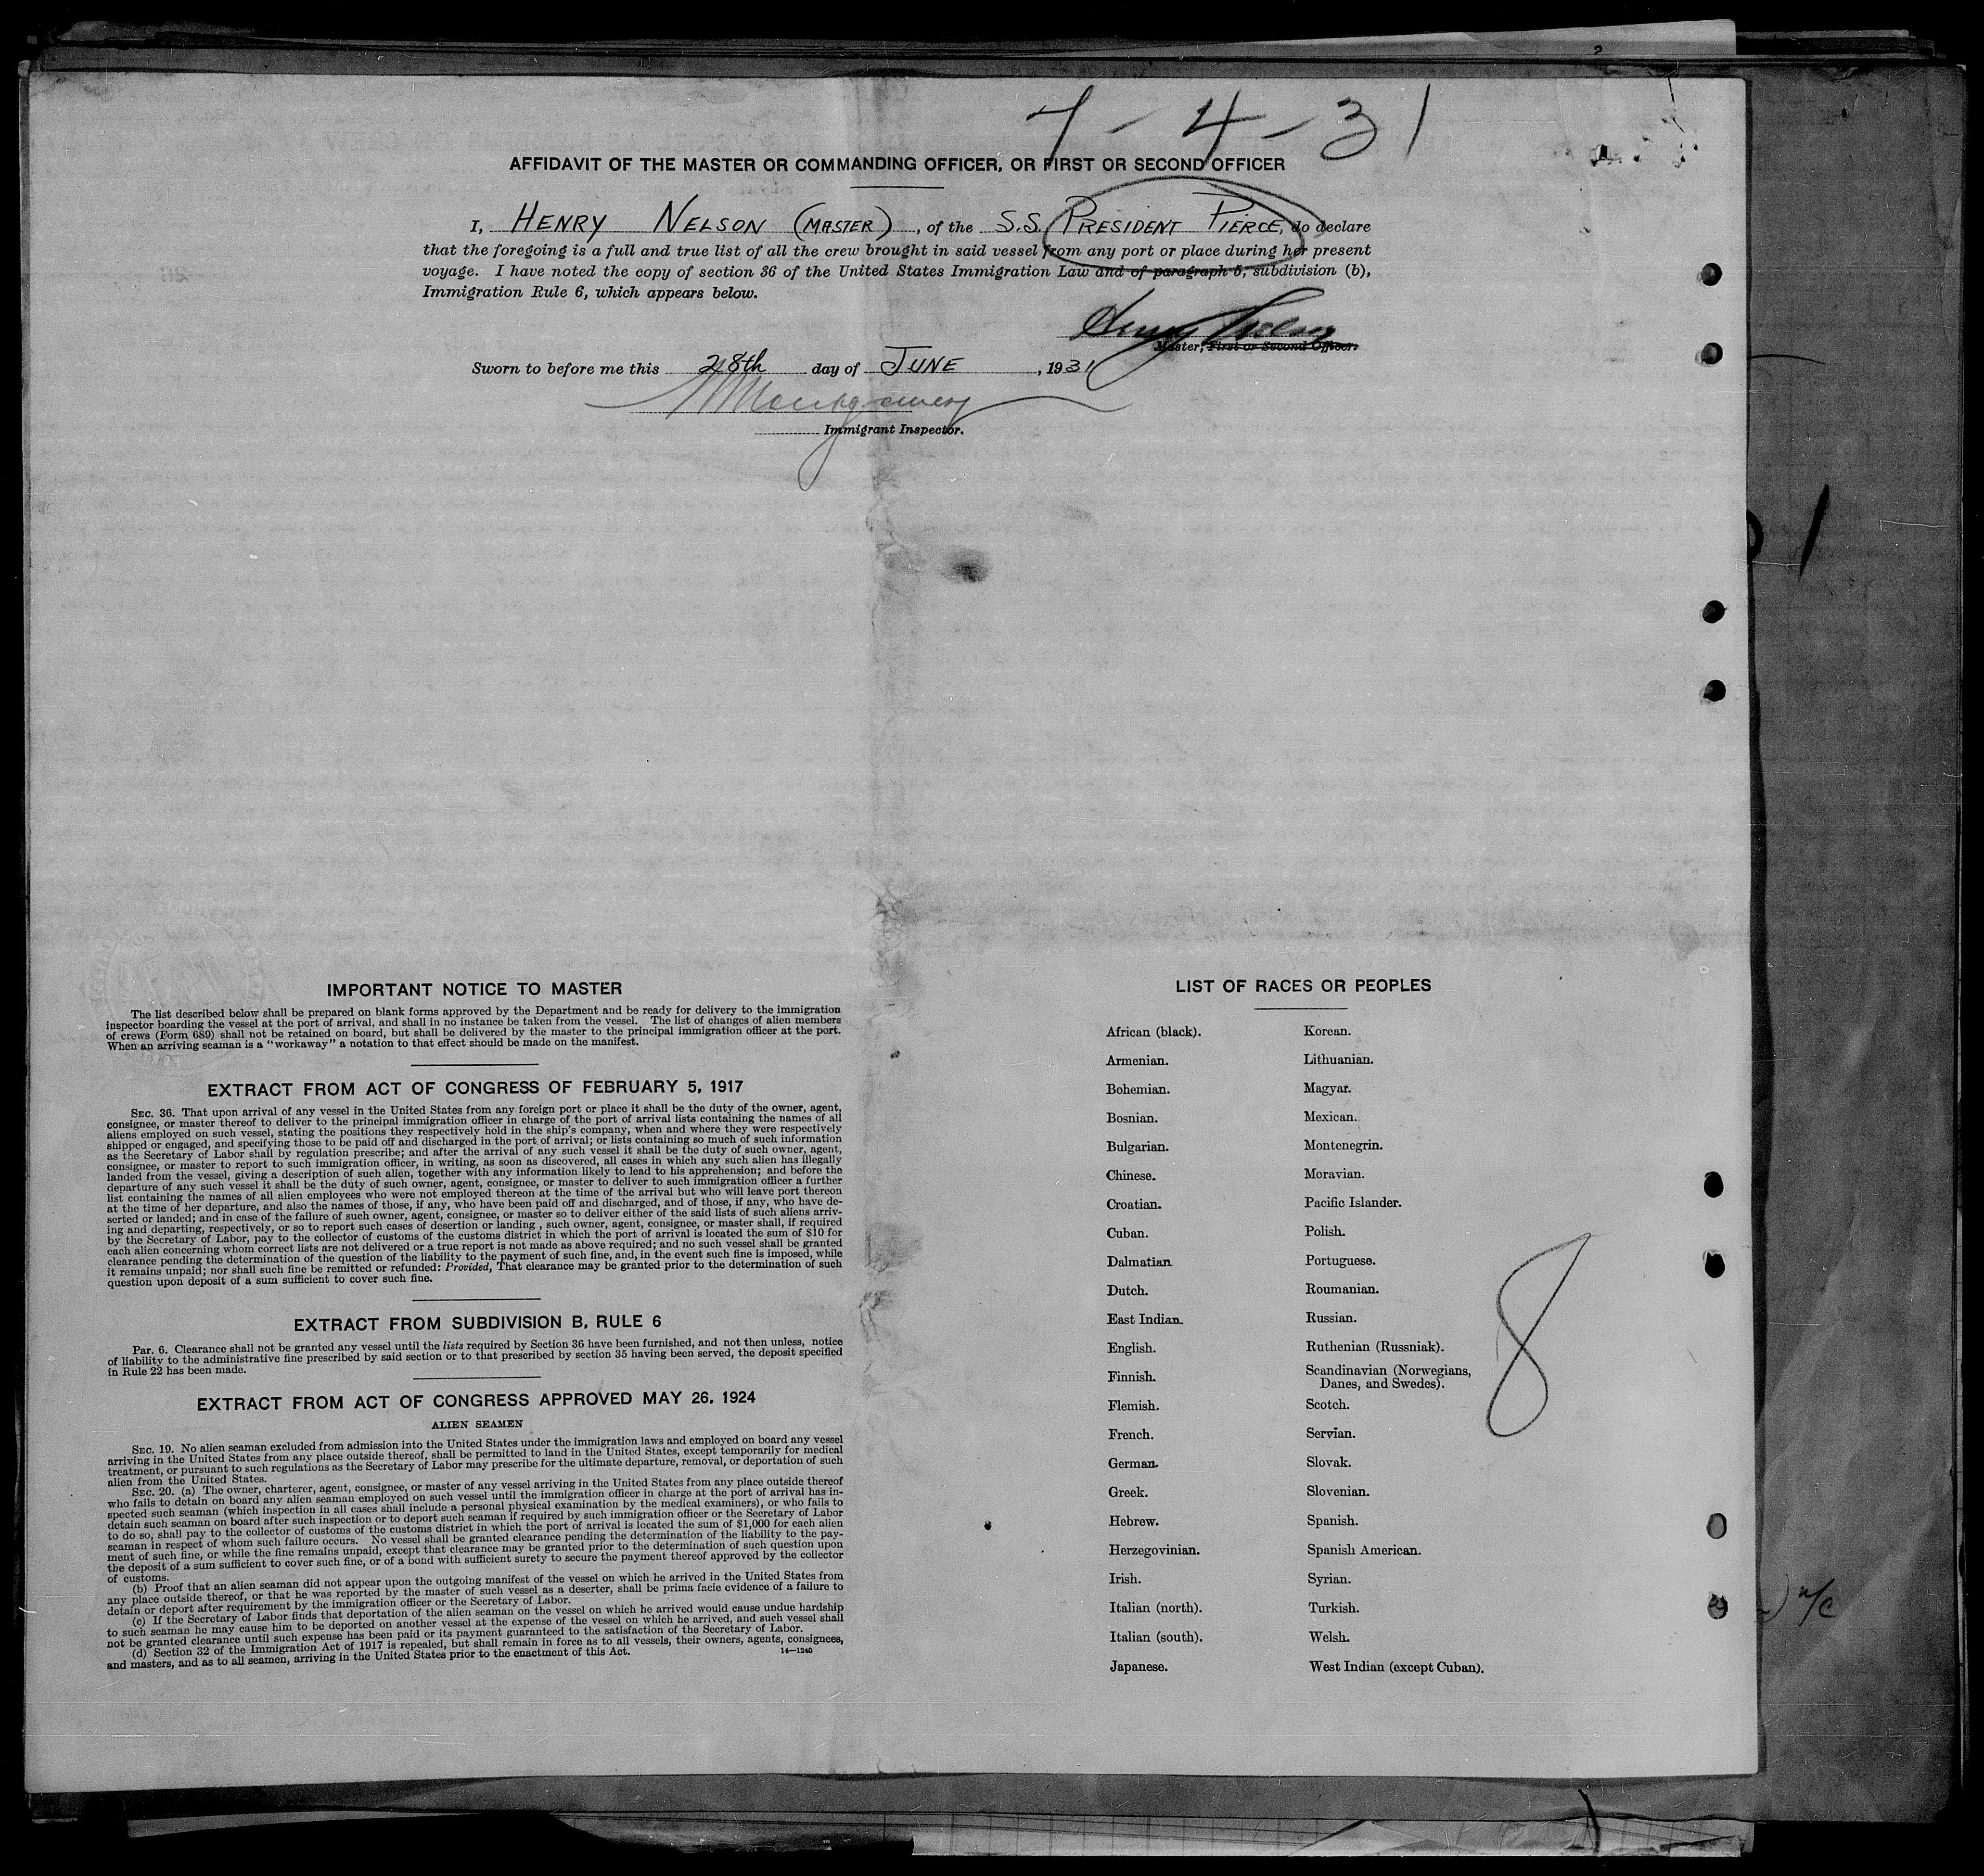 7-4-31
AFFIDAVIT OF THE MASTER OR COMMANDING OFFICER, OR FIRST OR SECOND OFFICER
I, HENRY NELSON (MASTER), of the S.S. PRESIDENT PIERCE, do declare
that the foregoing is a full and true list of all the crew brought in said vessel from any port or place during her present
voyage. I have noted the copy of section 36 of the United States Immigration Law and of paragraph 5, subdivision (b),
Immigration Rule 6, which appears below.
Henry Nelson
Master, First or Second Officer.
Sworn to before me this 28th day of JUNE, 1931
Montgomery
Immigrant Inspector.
IMPORTANT NOTICE TO MASTER
The list described below shall be prepared on blank forms approved by the Department and be ready for delivery to the immigration
inspector boarding the vessel at the port of arrival, and shall in no instance be taken from the vessel. The list of changes of alien members
of crews (Form 689) shall not be retained on board, but shall be delivered by the master to the principal immigration officer at the port.
When an arriving seaman is a "workaway" a notation to that effect should be made on the manifest.
EXTRACT FROM ACT OF CONGRESS OF FEBRUARY 5, 1917
SEC. 36. That upon arrival of any vessel in the United States from any foreign port or place it shall be the duty of the owner, agent,
consignee, or master thereof to deliver to the principal immigration officer in charge of the port of arrival lists containing the names of all
aliens employed on such vessel, stating the positions they respectively hold in the ship's company, when and where they were respectively
shipped or engaged, and specifying those to be paid off and discharged in the port of arrival; or lists containing so much of such information
as the Secretary of Labor shall by regulation prescribe; and after the arrival of any such vessel it shall be the duty of such owner, agent,
consignee, or master to report to such immigration officer, in writing, as soon as discovered, all cases in which any such alien has illegally
landed from the vessel, giving a description of such alien, together with any information likely to lead to his apprehension; and before the
departure of any such vessel it shall be the duty of such owner, agent, consignee, or master to deliver to such immigration officer a further
list containing the names of all alien employees who were not employed thereon at the time of the arrival but who will leave port thereon
at the time of her departure, and also the names of those, if any, who have been paid off and discharged, and of those, if any, who have de-
serted or landed; and in case of the failure of such owner, agent, consignee, or master so to deliver either of the said lists of such aliens arriv-
ing and departing, respectively, or so to report such cases of desertion or landing , such owner, agent, consignee, or master shall, if required
by the Secretary of Labor, pay to the collector of customs of the customs district in which the port of arrival is located the sum of $10 for
each alien concerning whom correct lists are not delivered or a true report is not made as above required; and no such vessel shall be granted
clearance pending the determination of the question of the liability to the payment of such fine, and, in the event such fine is imposed, while
it remains unpaid; nor shall such fine be remitted or refunded: Provided, That clearance may be granted prior to the determination of such
question upon deposit of a sum sufficient to cover such fine.
EXTRACT FROM SUBDIVISION B, RULE 6
Par. 6. Clearance shall not be granted any vessel until the lists required by Section 36 have been furnished, and not then unless, notice
of liability to the administrative fine prescribed by said section or to that prescribed by section 35 having been served, the deposit specified
in Rule 22 has been made.
EXTRACT FROM ACT OF CONGRESS APPROVED MAY 26, 1924
ALIEN SEAMEN
SEC. 19. No alien seaman excluded from admission into the United States under the immigration laws and employed on board any vessel
arriving in the United States from any place outside thereof, shall be permitted to land in the United States, except temporarily for medical
treatment, or pursuant to such regulations as the Secretary of Labor may prescribe for the ultimate departure, removal, or deportation of such
alien from the United States.
SEC. 20. (a) The owner, charterer, agent, consignee, or master of any vessel arriving in the United States from any place outside thereof
who fails to detain on board any alien seaman employed on such vessel until the immigration officer in charge at the port of arrival has in-
spected such seaman (which inspection in all cases shall include a personal physical examination by the medical examiners), or who fails to
detain such seaman on board after such inspection or to deport such seaman if required by such immigration officer or the Secretary of Labor
to do so, shall pay to the collector of customs of the customs district in which the port of arrival is located the sum of $1,000 for each alien
seaman in respect of whom such failure occurs. No vessel shall be granted clearance pending the determination of the liability to the pay-
ment of such fine, or while the fine remains unpaid, except that clearance may be granted prior to the determination of such question upon
the deposit of a sum sufficient to cover such fine, or of a bond with sufficient surety to secure the payment thereof approved by the collector
of customs.
(b) Proof that an alien seaman did not appear upon the outgoing manifest of the vessel on which he arrived in the United States from
any place outside thereof, or that he was reported by the master of such vessel as a deserter, shall be prima facie evidence of a failure to
detain or deport after requirement by the immigration officer or the Secretary of Labor.
(c) If the Secretary of Labor finds that deportation of the alien seaman on the vessel on which he arrived would cause undue hardship
to such seaman he may cause him to be deported on another vessel at the expense of the vessel on which he arrived, and such vessel shall
not be granted clearance until such expense has been paid or its payment guaranteed to the satisfaction of the Secretary of Labor.
(d) Section 32 of the Immigration Act of 1917 is repealed, but shall remain in force as to all vessels, their owners, agents, consignees,
and masters, and as to all seamen, arriving in the United States prior to the enactment of this Act. 14—1240
LIST OF RACES OR PEOPLES
African (black).
Armenian.
Bohemian.
Bosnian.
Bulgarian.
Chinese.
Croatian.
Cuban.
Dalmatian.
Dutch.
East Indian.
English.
Finnish.
Flemish.
French.
German.
Greek.
Hebrew.
Herzegovinian.
Irish.
Italian (north).
Italian (south).
Japanese.
Korean.
Lithuanian.
Magyar.
Mexican.
Montenegrin.
Moravian.
Pacific Islander.
Polish.
Portuguese.
Roumanian.
Russian.
Ruthenian (Russniak).
Scandinavian (Norwegians,
Danes, and Swedes).
Scotch.
Servian.
Slovak.
Slovenian.
Spanish.
Spanish American.
Syrian.
Turkish.
Welsh.
West Indian (except Cuban).
8